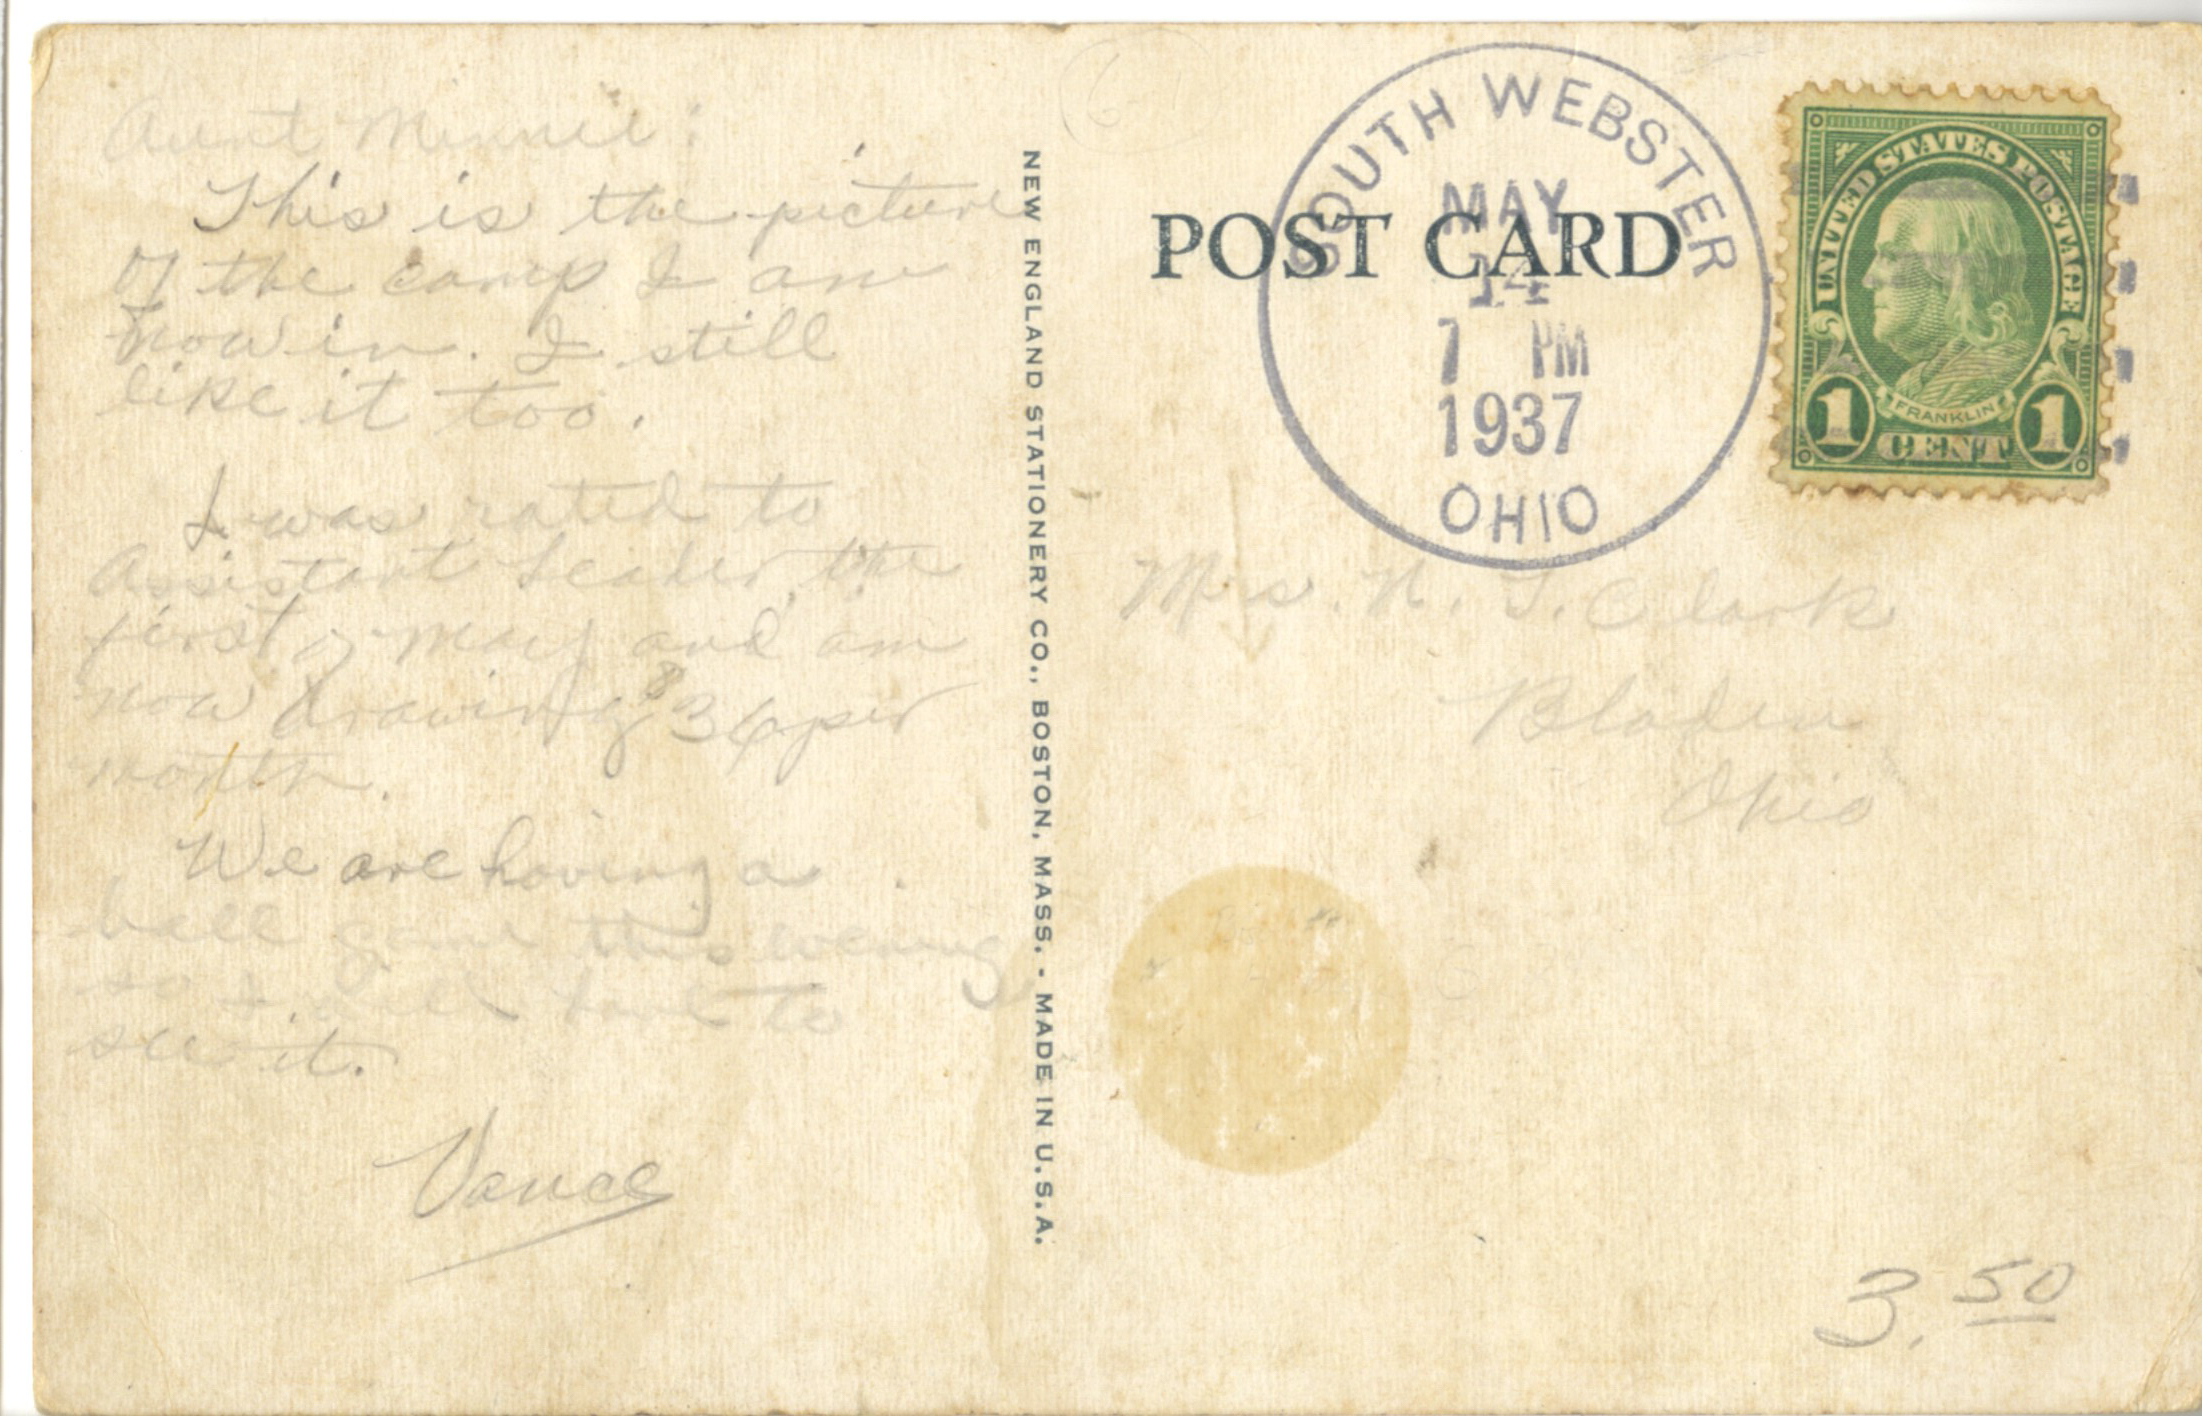 Aunt Minnie:
This is the picture
of the camp I am
now in. I still
like it too.
I was rated to
Assistant Leader, the
first of May and am
now drawing $36 per
month.
We are having a
ball game this evening
so I will have to
see it.
Vance
NEW ENGLAND STATIONERY CO., BOSTON, MASS. - MADE IN U.S.A.
POST CARD
SOUTH WEBSTER
MAY
14
7 PM
1937
OHIO
UNITED STATES POSTAGE
FRANKLIN
1 CENT 1
Mrs. N. T. Clark
Bladen
Ohio
3.50